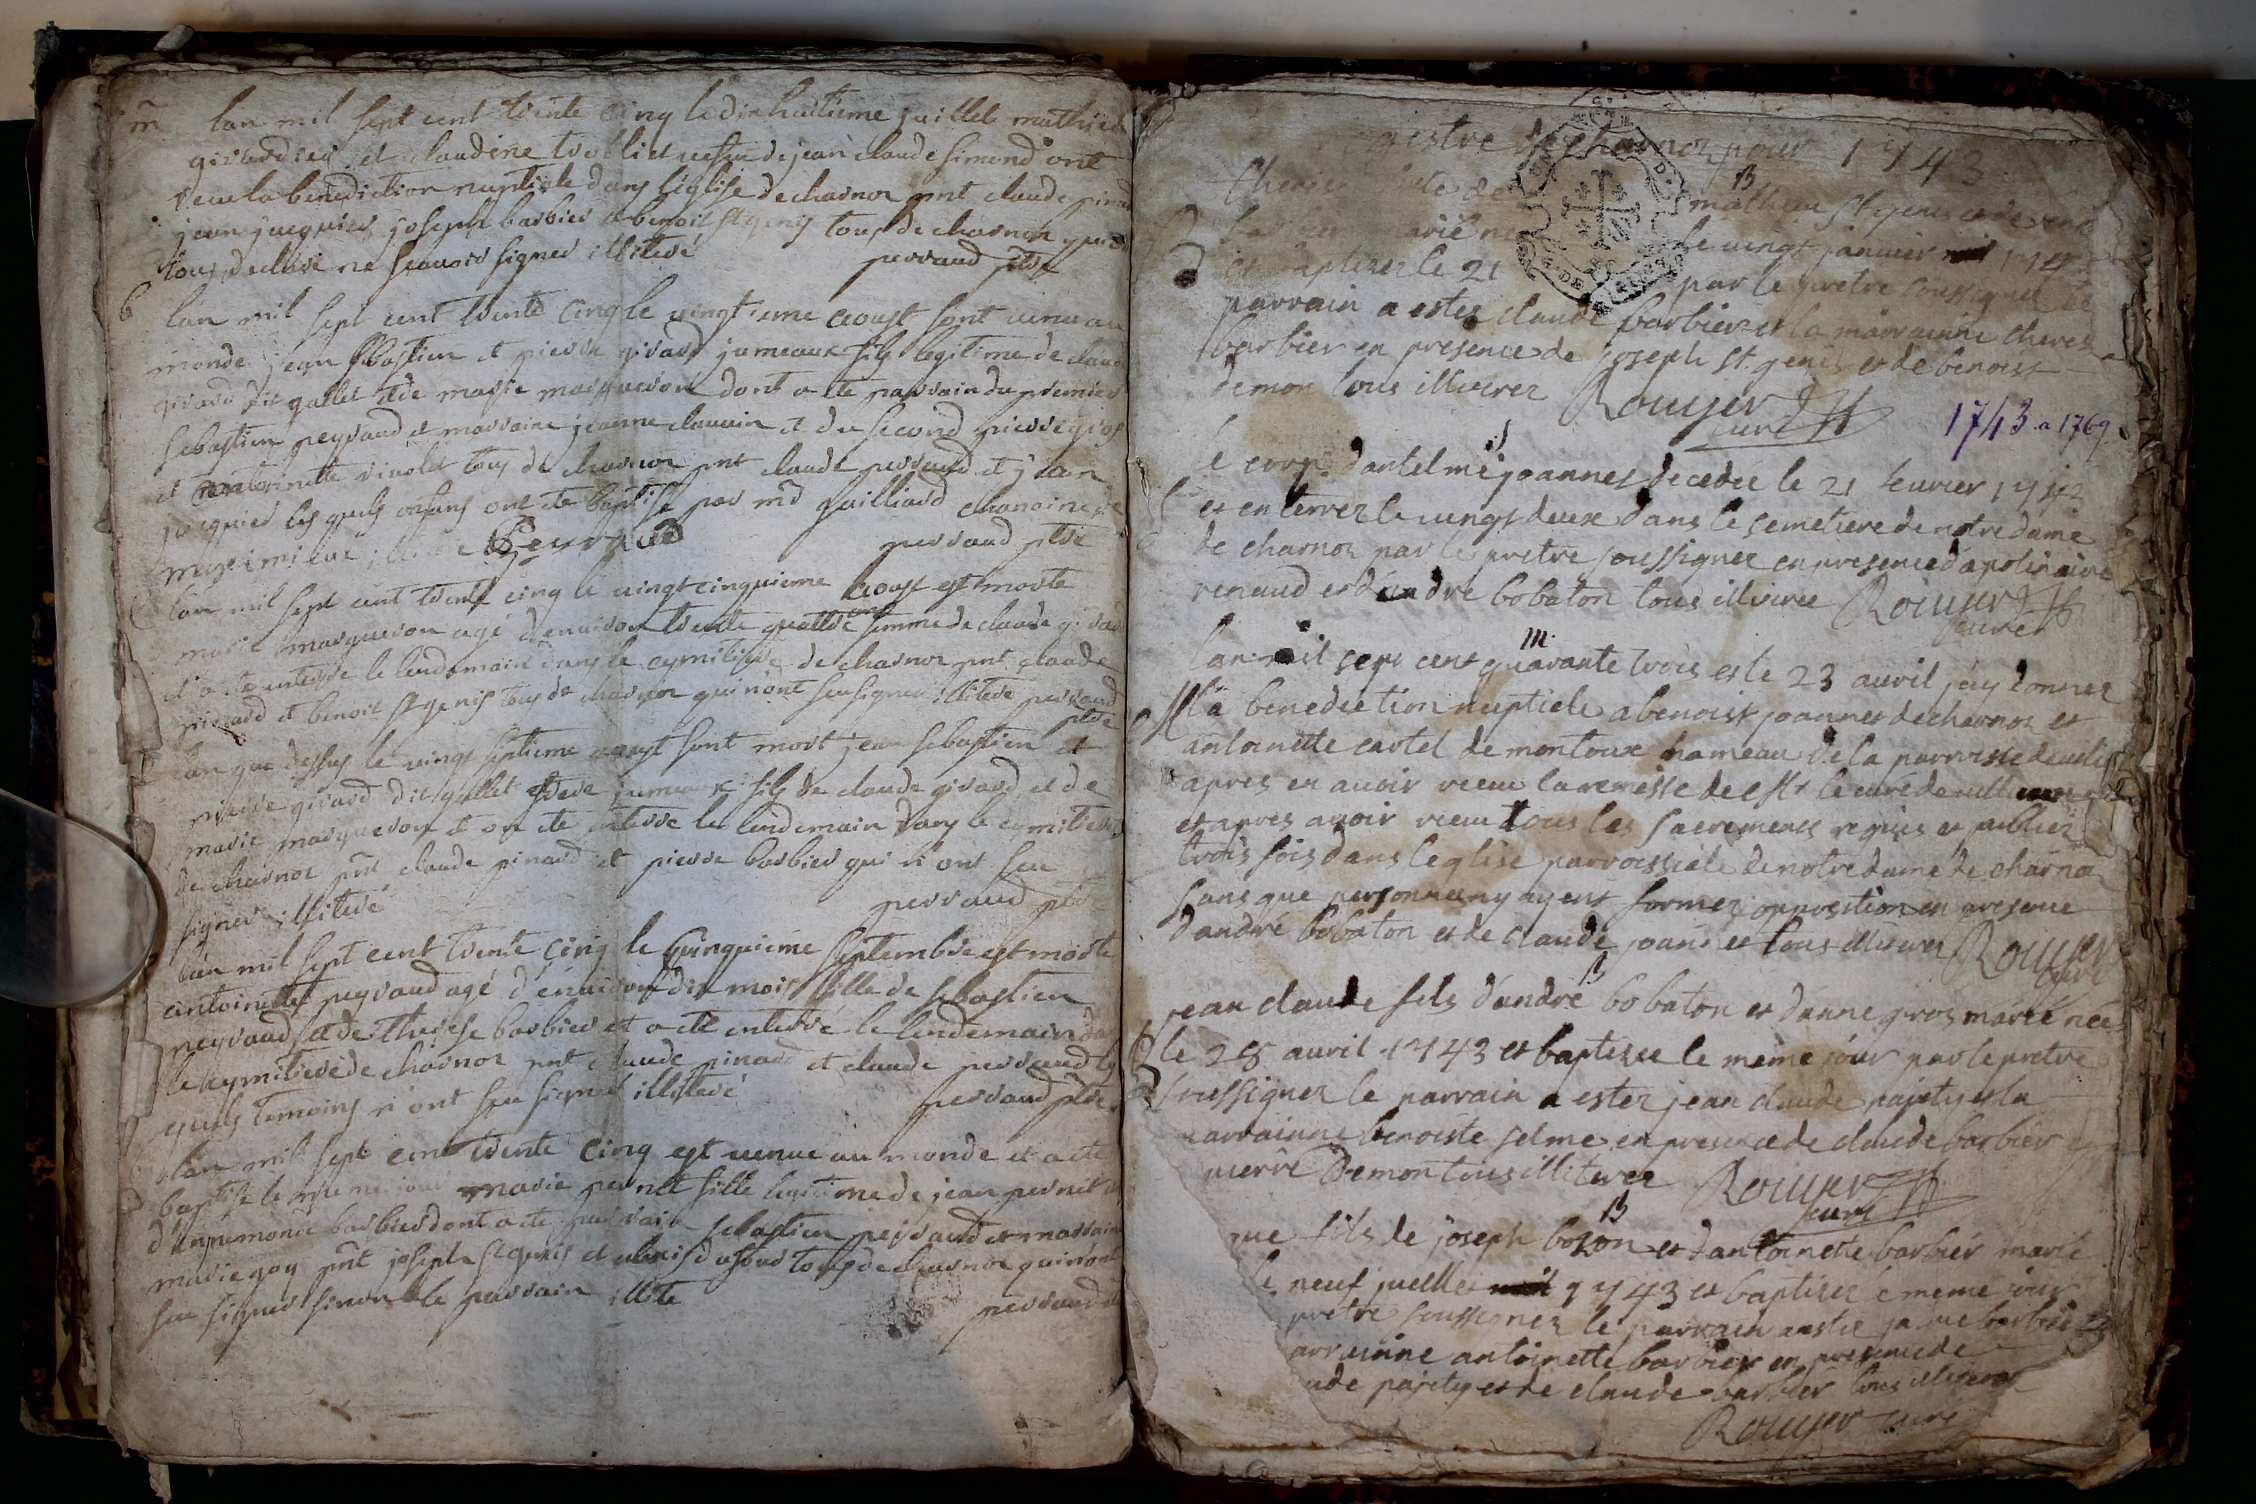 m lan mil sept cent trente cinq le dixhuitieme juillet mathieu
girardier et claudine trollict vefue de jean claude simond ont
receu la benediction nuptiale dans l'eglise de charnoz pnt claude pinard
jean jacquier joseph barbier benoit st genis tous de charnoz qui
tous declaré ne scauoir signer illiteré perraud ptre
b lan mil sept cent trente cinq le vingtieme aoust sont venu au
monde jean sebastien et pierre girard jumeaux fils legitime de claude
girard dit gallet et de marie marqueron dont a ete parrain du premier
sebastien peyraud et marraine jeanne et du second pierre gros
et antoinette violet tous de charnoz pnt claude perraud et jean
jacquier les quels enfans ont ete baptisé par mr gailliard chanoine de
meximieux Peyraud perraud ptre
lan mil sept cent trente cinq le vingt cinquieme aoust est morte
marie marqueron agé d'enuiron trente quattre ans femme de claude girard
et a ete enterré le lendemain dans le cymitiere de charnoz pnt claude
pinard et benoit st genis tous de charnoz qui n'ont sceu signer illiteré perraud
ptre
lan que dessus le vingt septieme aoust sont mort jean sebastien et
pierre girard dit gallet frere jumeaux fils de claude girard et de
marie marqueron et on ete enterré le lendemain dans le cymitiere
de charnoz pnt claude pinard et pierre barbier qui n'ont sceu
signer illiteré perraud ptre
lan mil sept cent trente cinq le cinquieme septembre est morte
antoinette peyraud agé d'enuiron dix mois fille de sebastien
peyraud et de therese barbier et a ete enterré le lendemain dans
le cymitiere de charnoz pnt claude pinard et claude perraud les
quels temoins n'ont sceu signer illiteré perraud ptre
lan mil sept cent trente cinq est venue au monde et a ete
baptisé le meme jour marie pernet fille legitime de jean pernet et
d'anremonde barbier dont a ete parrain sebastien peyraud et marraine
marie goy pnt joseph st genis et tous de charnoz qui n'ont
sceu signer sinon le parrain illite perraud
gistre de charnoz pour 1743
B
mathieu st genis et de
marié le vingt janvier mil
baptisez le 21 par le pretre soussigné
parrain a estez claude barbier et la marrainne
barbier en presence de joseph st. genis et de benoist
demon tous illiterez Rouyer
curé
1743 a 1769
S
le corp. d'antelme joannes decedée le 21 feurier 1742
et enterrez le vingt deux dans le semetiere de notre dame
de charnoz par le pretre soussignez en presence d'apolinaire
renaud et d'andre bobaton tous illiterez Rouyer
curé
m
lan mil sept cent quarante trois et le 23 auril j'ay donnez
la benediction nuptiele a benoist joannes de charnoz et
antoinette cartel de montoux hameau de la parroisse
apres en auoir receu la remesse de Mr le curé
et apres auoir receu tous les sacrements requis et publiez
trois fois dans l'eglise parroissiale de notre dame de charnoz
sans que personne n'y ayent formez opposition en presence
d'andré bobaton et de claude joannes tous illiterez Rouyer
curé
B
jean claude fils d'andré bobaton et d'anne gros marié née
le 28 auril 1743 et baptisée le meme jour par le pretre
soussignez le parrain a estez jean claude pajety et la
marrainne benoiste selme en presence de claude barbier
pierre Demon tous illiterez Rouyer
curé
B
que fils de joseph bozon et d'antoinette barbier marié
le neuf juellet mil 1743 et baptisez le meme jour
pretre soussignez le parrain a estie barbier
arrainne antoinette barbier en presence de
ude pajety et de claude barbier tous illiterez
Rouyer curé